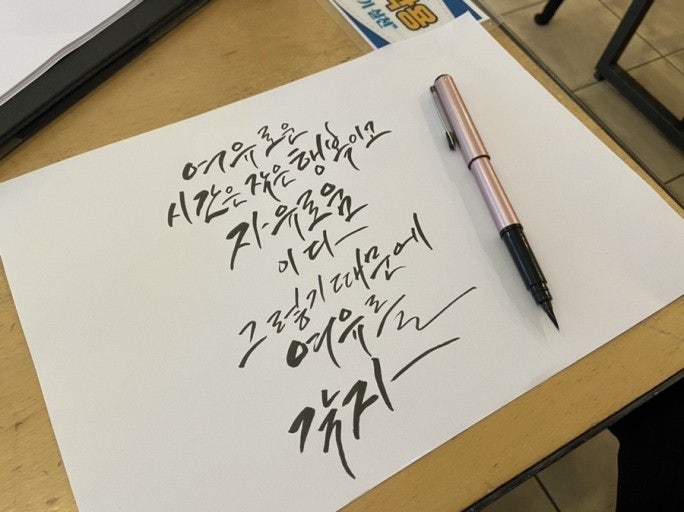 기 실천"
여유로운
시간은 잦은 행복이고
자유로움
이다
그렇기 때문에
여유를
갖지